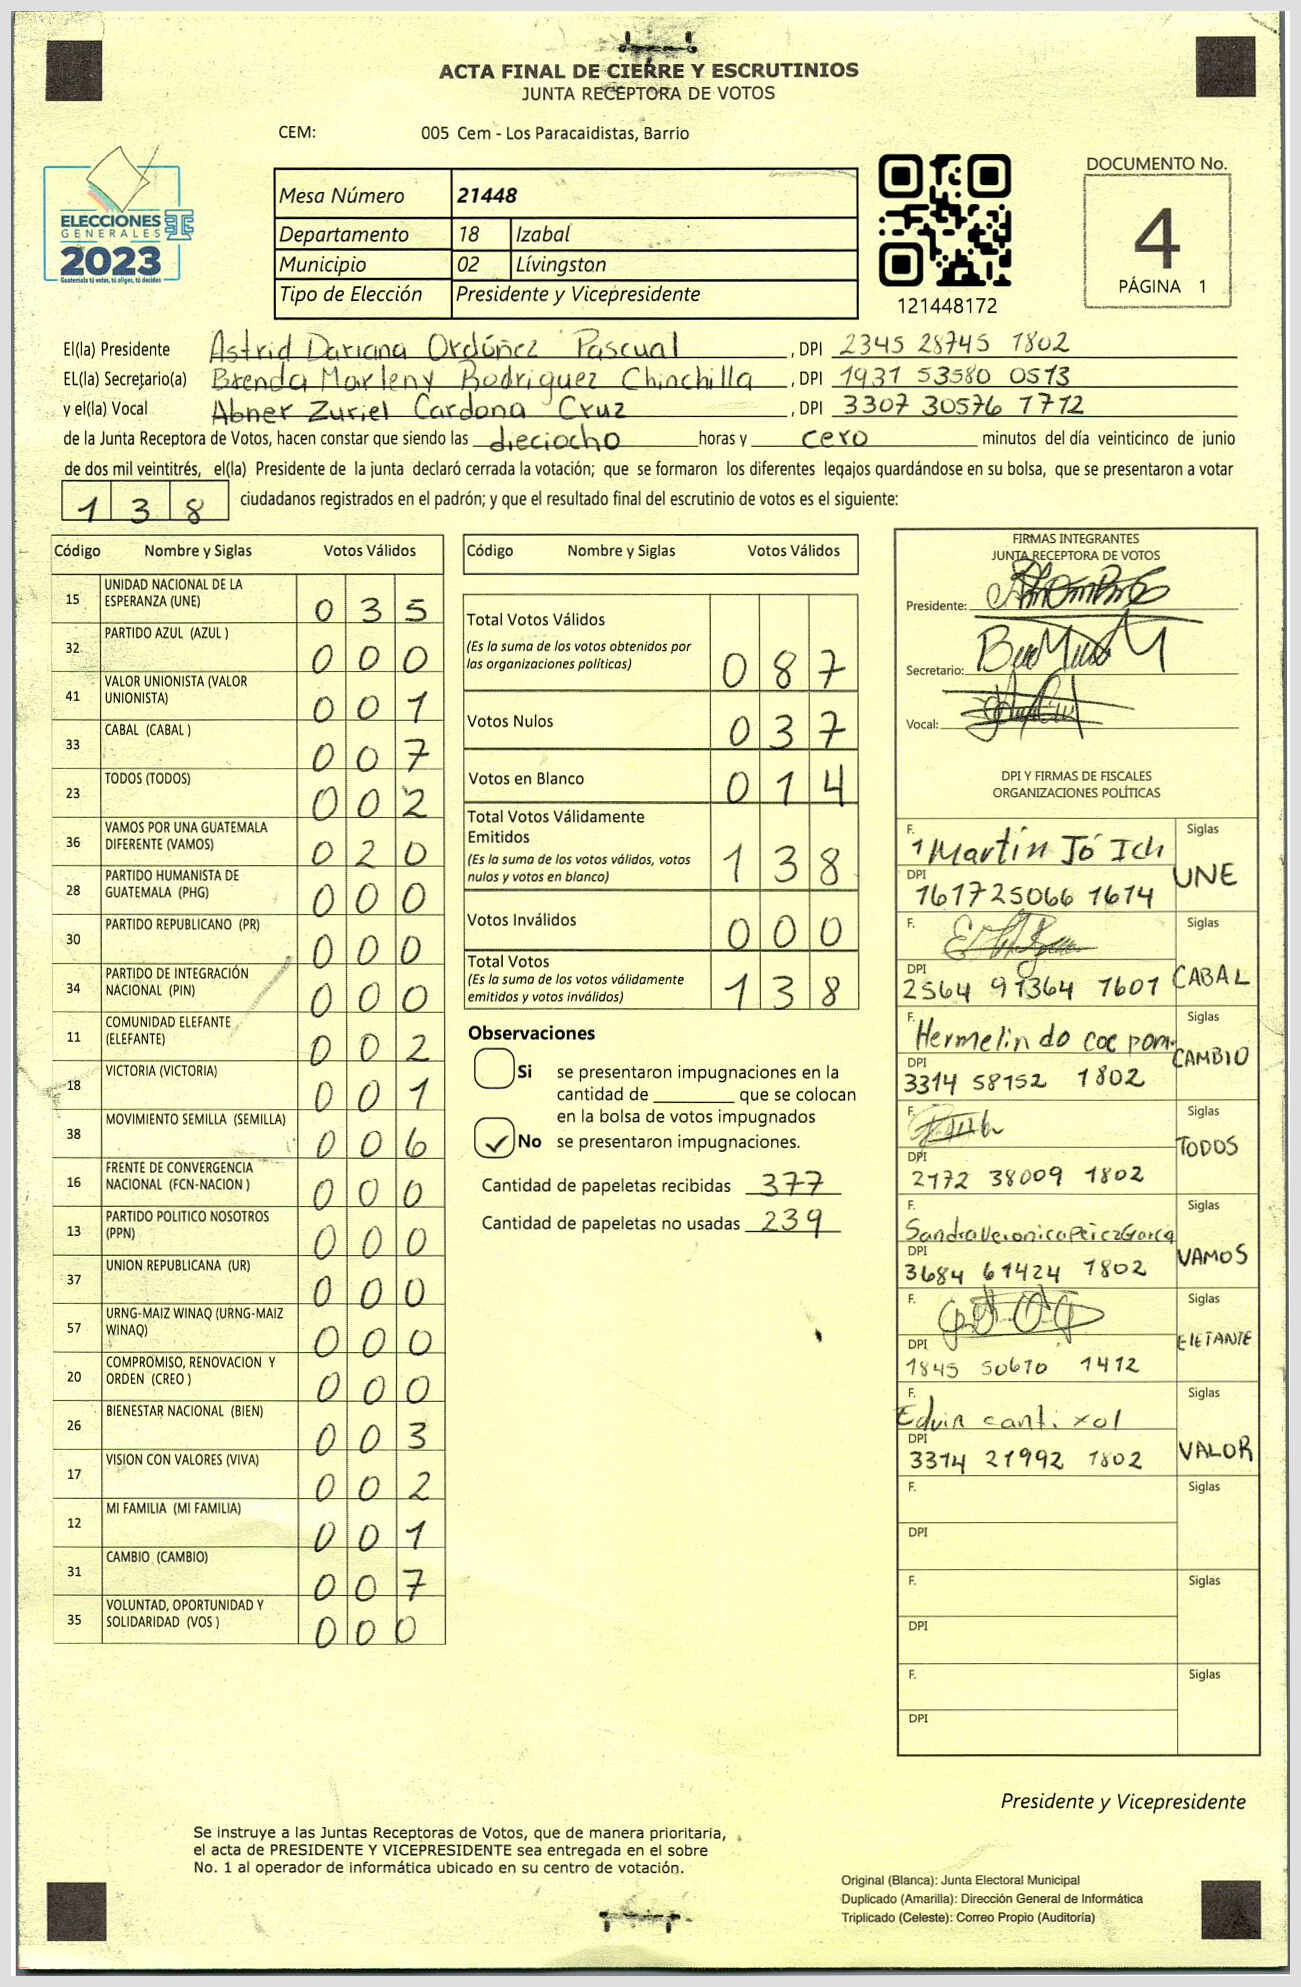 ACTA FINAL DE CIERRE Y ESCRUTINIOS
JUNTA RECEPTORA DE VOTOS
CEM: 005 Cem - Los Paracaidistas, Barrio
ELECCIONES
GENERALES
2023
Guatemala tú votas, tú eliges, tú decides
Mesa Número 21448
Departamento 18 Izabal
Municipio 02 Lívingston
Tipo de Elección Presidente y Vicepresidente
121448172
DOCUMENTO No.
4
PÁGINA 1
El(la) Presidente Astrid Dariana Ordóñez Pascual , DPI 2345 28745 1802
EL(la) Secretario(a) Brenda Marleny Rodriguez Chinchilla , DPI 1931 53580 0513
y el(la) Vocal Abner Zuriel Cardona Cruz , DPI 3307 30576 1712
de la Junta Receptora de Votos, hacen constar que siendo las dieciocho horas y cero minutos del día veinticinco de junio
de dos mil veintitrés, el(la) Presidente de la junta declaró cerrada la votación; que se formaron los diferentes legajos guardándose en su bolsa, que se presentaron a votar
138 ciudadanos registrados en el padrón; y que el resultado final del escrutinio de votos es el siguiente:
Código Nombre y Siglas Votos Válidos
15 UNIDAD NACIONAL DE LA ESPERANZA (UNE) 035
32 PARTIDO AZUL (AZUL ) 000
41 VALOR UNIONISTA (VALOR UNIONISTA) 001
33 CABAL (CABAL ) 007
23 TODOS (TODOS) 002
36 VAMOS POR UNA GUATEMALA DIFERENTE (VAMOS) 020
28 PARTIDO HUMANISTA DE GUATEMALA (PHG) 000
30 PARTIDO REPUBLICANO (PR) 000
34 PARTIDO DE INTEGRACIÓN NACIONAL (PIN) 000
11 COMUNIDAD ELEFANTE (ELEFANTE) 002
18 VICTORIA (VICTORIA) 001
38 MOVIMIENTO SEMILLA (SEMILLA) 006
16 FRENTE DE CONVERGENCIA NACIONAL (FCN-NACION ) 000
13 PARTIDO POLITICO NOSOTROS (PPN) 000
37 UNION REPUBLICANA (UR) 000
57 URNG-MAIZ WINAQ (URNG-MAIZ WINAQ) 000
20 COMPROMISO, RENOVACION Y ORDEN (CREO ) 000
26 BIENESTAR NACIONAL (BIEN) 003
17 VISION CON VALORES (VIVA) 002
12 MI FAMILIA (MI FAMILIA) 001
31 CAMBIO (CAMBIO) 007
35 VOLUNTAD, OPORTUNIDAD Y SOLIDARIDAD (VOS ) 000
Código Nombre y Siglas Votos Válidos
Total Votos Válidos
(Es la suma de los votos obtenidos por
las organizaciones políticas) 087
Votos Nulos 037
Votos en Blanco 014
Total Votos Válidamente
Emitidos
(Es la suma de los votos válidos, votos
nulos y votos en blanco) 138
Votos Inválidos 000
Total Votos
(Es la suma de los votos válidamente
emitidos y votos inválidos) 138
Observaciones
Si se presentaron impugnaciones en la
cantidad de ________ que se colocan
en la bolsa de votos impugnados
No se presentaron impugnaciones.
Cantidad de papeletas recibidas 377
Cantidad de papeletas no usadas 239
FIRMAS INTEGRANTES
JUNTA RECEPTORA DE VOTOS
Presidente:
Secretario:
Vocal:
DPI Y FIRMAS DE FISCALES
ORGANIZACIONES POLÍTICAS
F. Martín Jó Ich Siglas
DPI 1617 25066 1614 UNE
F. Siglas
DPI 2564 91364 1601 CABAL
F. Hermelindo coc pom Siglas
DPI 3314 58152 1802 CAMBIO
F. Siglas
DPI 2172 38009 1802 TODOS
F. Sandra Veronica Pérez García Siglas
DPI 3684 61424 1802 VAMOS
F. Siglas
DPI 1845 50610 1412 ElEFANTE
F. Edvin cantí xol Siglas
DPI 3314 21992 1802 VALOR
F. Siglas
DPI
F. Siglas
DPI
F. Siglas
DPI
Presidente y Vicepresidente
Se instruye a las Juntas Receptoras de Votos, que de manera prioritaria,
el acta de PRESIDENTE Y VICEPRESIDENTE sea entregada en el sobre
No. 1 al operador de informática ubicado en su centro de votación.
Original (Blanca): Junta Electoral Municipal
Duplicado (Amarilla): Dirección General de Informática
Triplicado (Celeste): Correo Propio (Auditoría)